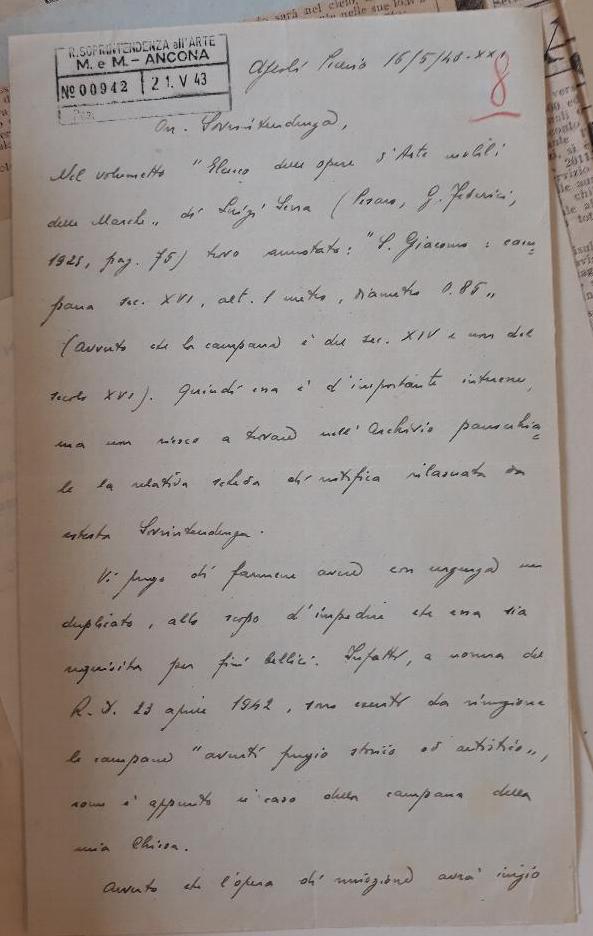 R. SOPRINTENDENZA all'ARTE
M. e M. - ANCONA
No 00942 21. V 43
Ascoli Piceno 16/5/43-XXI
8
On. Sovrintendenza,
Nel volumetto "Elenco delle opere d'Arte mobili
delle Marche„ di Luigi Serra (Pesaro, G. Federici,
1925, pag. 75) trovo annotato: "S. Giacomo: cam=
pana sec. XVI, alt. 1 metro, diametro 0.85„
(avverto che la campana è del sec. XIV e non del
secolo XVI). Quindi essa è d'importante interesse,
ma non riesco a trovare nell'Archivio parrocchia=
le la relativa scheda di notifica rilasciata da
codesta Sovrintendenza.
Vi prego di farmene avere con urgenza un
duplicato, allo scopo d'impedire che essa sia
requisita per fini bellici. Infatti, a norma del
R. D. 23 aprile 1942, sono esenti da rimozione
le campane "aventi pregio storico od artistico„,
come è appunto il caso della campana della
mia Chiesa.
Avverto che l'opera di rimozione avrà inizio